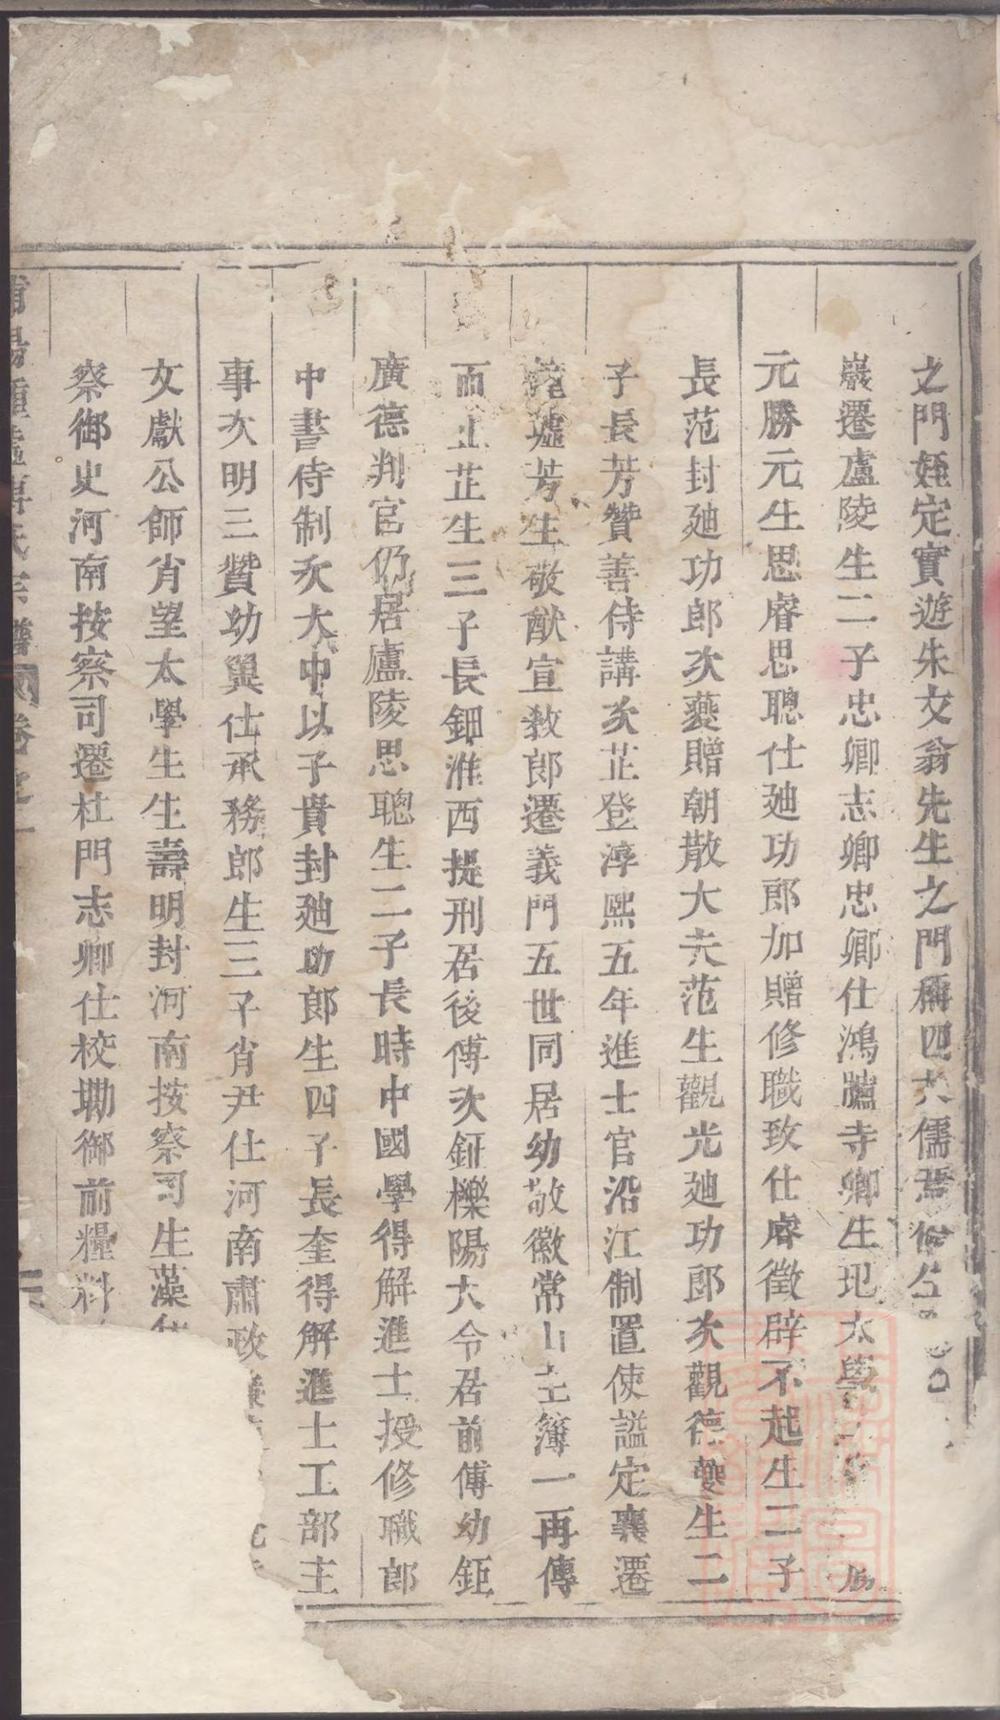 之門姪定實遊朱文翁先生之門稱四大儒焉
巖遷廬陵生二子忠卿志卿忠卿仕鴻臚寺卿生玘太學
元勝元生思睿思聰仕廸功郎加贈修職致仕睿徵辟不起生二子
長范封廸功郎次夔贈朝散大夫范生觀光廸功郎次觀德夔生二
子長芳贊善侍講次芷登淳熙五年進士官沿江制置使謚定襄遷
墟芳生敬猷宣教郎遷義門五世同居幼敬徽常山主簿一再傳
而止芷生三子長鈿淮西提刑居後傅次鉦櫟陽大令居前傅幼鉅
廣德判官仍居廬陵思聰生二子長時中國學得解進士授修職郎
中書侍制次大中以子貴封廸功郎生四子長奎得解進士工部主
事次明三贊幼翼仕承務郎生三子肖尹仕河南肅政
文獻公師肖望太學生生壽明封河南按察司生藻
察御史河南按察司遷杜門志卿仕校勘御前糧料
傅氏宗譜 卷之一